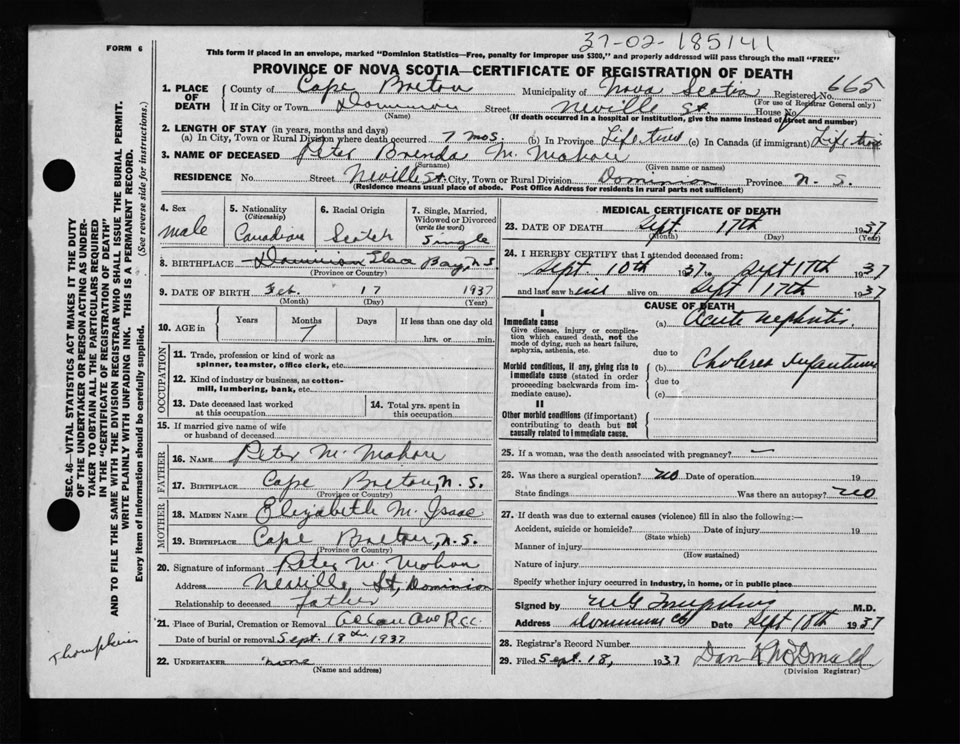 37-02-185141
FORM 6
This form if placed in an envelope, marked "Dominion Statistics—Free, penalty for improper use $300," and properly addressed will pass through the mail "FREE"
PROVINCE OF NOVA SCOTIA—CERTIFICATE OF REGISTRATION OF DEATH
1. PLACE OF DEATH
County of Cape Breton Municipality of Nova Scotia Registered No. 665
(For use of Registrar General only)
If in City or Town Dominion Street Neville St. House No.
(Name) (If death occurred in a hospital or institution, give the name instead of street and number)
2. LENGTH OF STAY (in years, months and days)
(a) In City, Town or Rural Division where death occurred 7 mos. (b) In Province Life time (c) In Canada (if immigrant) Life time
3. NAME OF DECEASED Peter Brenda
(Surname) (Given name or names)
RESIDENCE No. Street Neville St. City, Town or Rural Division Dominion Province N. S.
(Residence means usual place of abode. Post Office Address for residents in rural parts not sufficient)
4. Sex
male
5. Nationality
(Citizenship)
Canadian
6. Racial Origin
Scotch
7. Single, Married, Widowed or Divorced
(write the word)
Single
8. BIRTHPLACE Dominion Glace Bay, N.S
(Province or Country)
9. DATE OF BIRTH Feb. 17 1937
(Month) (Day) (Year)
10. AGE in Years Months Days If less than one day old
7 hrs. or min.
OCCUPATION
11. Trade, profession or kind of work as spinner, teamster, office clerk, etc.
12. Kind of industry or business, as cotton-mill, lumbering, bank, etc.
13. Date deceased last worked at this occupation
14. Total yrs. spent in this occupation
15. If married give name of wife or husband of deceased
FATHER
16. NAME Peter
17. BIRTHPLACE Cape Breton, N. S.
(Province or Country)
MOTHER
18. MAIDEN NAME Elizabeth M. Isaac
19. BIRTHPLACE Cape Breton, N.S.
(Province or Country)
20. Signature of informant Peter
Address Neville St, Dominion
Relationship to deceased father
21. Place of Burial, Cremation or Removal
Date of burial or removal Sept. 18th 1937
22. UNDERTAKER none
(Name and address)
MEDICAL CERTIFICATE OF DEATH
23. DATE OF DEATH Sept. 17th 1937
(Month) (Day) (Year)
24. I HEREBY CERTIFY that I attended deceased from
Sept. 10th 1937 to Sept 17th 1937
and last saw him alive on Sept. 17th 1937
CAUSE OF DEATH
I
Immediate cause
Give disease, injury or complication which caused death, not the mode of dying, such as heart failure, asphyxia, asthenia, etc.
(a) Acute nephritis.
due to
Morbid conditions, if any, giving rise to immediate cause (stated in order proceeding backwards from immediate cause).
(b) Cholera Infantum
due to
(c)
II
Other morbid conditions (if important) contributing to death but not causally related to immediate cause.
25. If a woman, was the death associated with pregnancy? —
26. Was there a surgical operation? no Date of operation 19
State findings Was there an autopsy? no
27. If death was due to external causes (violence) fill in also the following:—
Accident, suicide or homicide? Date of injury 19
(State which)
Manner of injury
(How sustained)
Nature of injury
Specify whether injury occurred in industry, in home, or in public place
Signed by M.D.
Address Dominion Date Sept 18th 1937
28. Registrar's Record Number
29. Filed Sept. 18, 1937 Dan
(Division Registrar)
SEC. 46—VITAL STATISTICS ACT MAKES IT THE DUTY
OF THE UNDERTAKER OR PERSON ACTING AS UNDER-
TAKER TO OBTAIN ALL THE PARTICULARS REQUIRED
IN THE "CERTIFICATE OF REGISTRATION OF DEATH"
AND TO FILE THE SAME WITH THE DIVISION REGISTRAR WHO SHALL ISSUE THE BURIAL PERMIT.
WRITE PLAINLY WITH UNFADING INK. THIS IS A PERMANENT RECORD.
Every item of information should be carefully supplied. (See reverse side for instructions.)
Thompkins